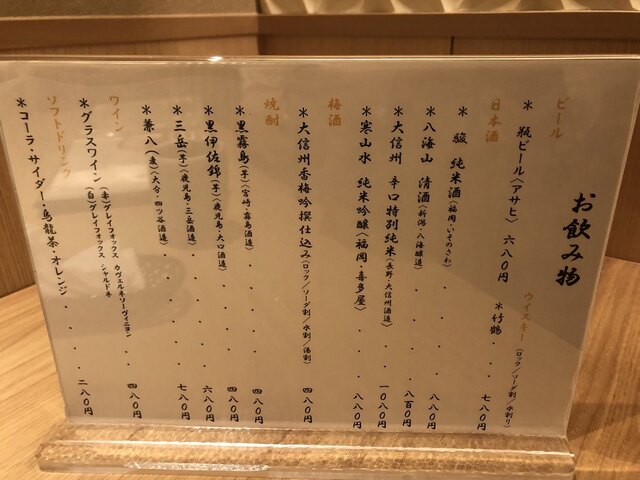 お飲み物
ビール
＊ 瓶ビール〈アサヒ〉 六八〇円
ウイスキー〈ロック／ソーダ割／水割り〉
＊竹鶴・・・七八〇円
日本酒
＊駿 純米酒〈福岡・いそのさわ〉・・・八八〇円
＊八海山 清酒〈新潟・八海醸造〉・・・八八〇円
＊大信州 辛口特別純米〈長野・大信州酒造〉・・八百〇円
＊寒山水 純米吟醸〈福岡・喜多屋〉・・・一〇八〇円
八八〇円
梅酒
＊大信州香梅吟撰仕込み〈ロック／ソーダ割／水割／湯割〉 四八〇円
焼酎
＊黒霧島〈芋〉〈宮崎・霧島酒造〉・・・四八〇円
＊黒伊佐錦〈芋〉〈鹿児島・大口酒造〉・・・四八〇円
＊三岳〈芋〉〈鹿児島・三岳酒造〉・・・六八〇円
＊兼八〈麦〉〈大分・四ツ谷酒造〉・・・七八〇円
ワイン
＊グラスワイン〈赤〉グレイフォックス カヴェルネソーヴィニヨン
〈白〉グレイフォックス シャルドネ・・四八〇円
ソフトドリンク
＊コーラ・サイダー・烏龍茶・オレンジ・・・二八〇円